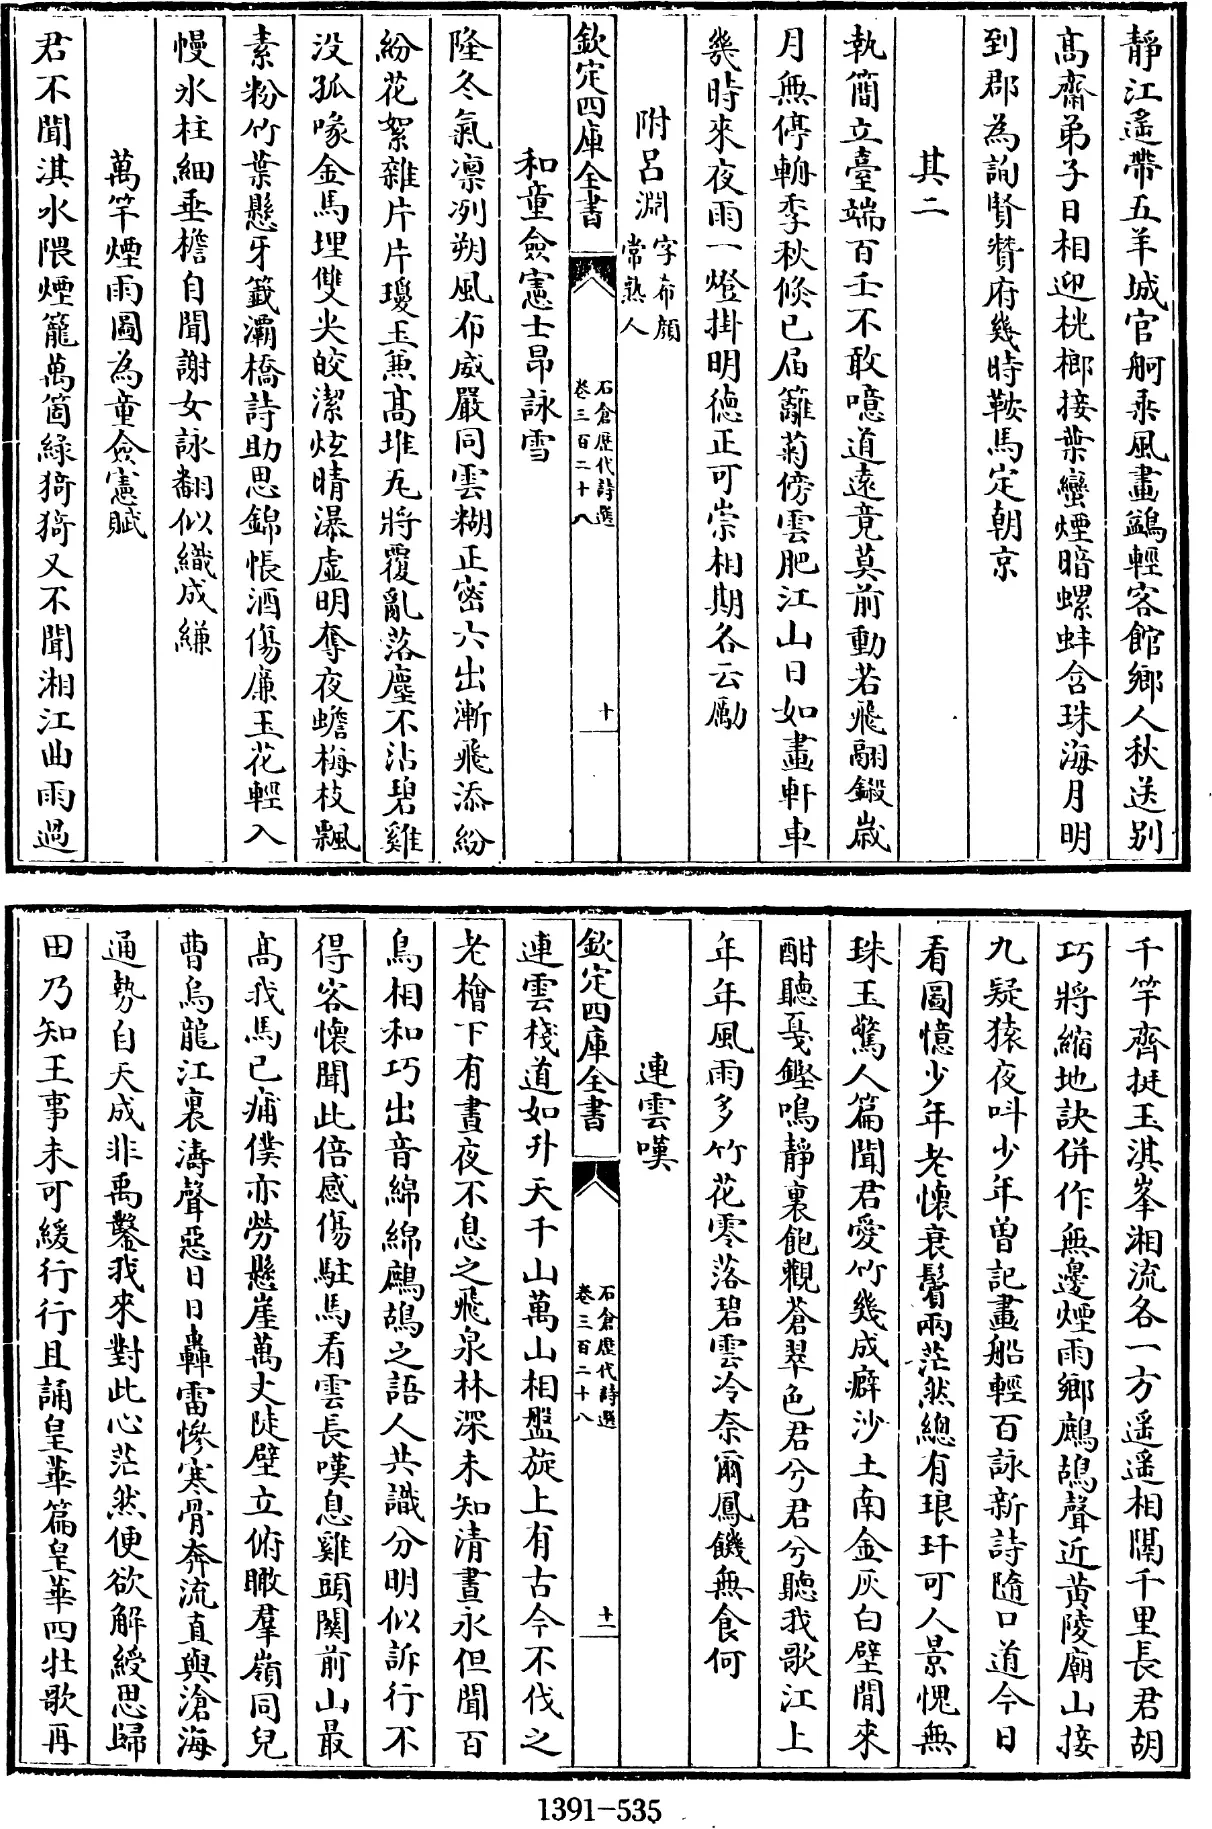 靜江遙帶五羊城官舸乘風畫鷁輕客館鄉人秋送别
髙齋弟子日相迎桄榔接葉蠻煙暗螺蚌含珠海月明
到郡為詢賢贊府幾時鞍馬定朝京
其二
執簡立臺端百壬不敢噫道遠竟莫前動若飛翮鎩歲
月無停輈季秋倐已屆籬菊傍雲肥江山日如畫軒車
幾時來夜雨一燈掛明德正可崇相期各云勵
附呂淵字希顔常熟人
欽定四庫全書
石倉歷代詩選
卷三百二十八
十
和童僉憲士昂詠雪
隆冬氣凛冽朔風布威嚴同雲糊正密六出漸飛添紛
紛花絮雜片片瓊玉兼髙堆瓦將覆亂落塵不沾碧雞
没孤喙金馬埋雙尖皎潔炫晴瀑虚明奪夜蟾梅枝飄
素粉竹葉懸牙籖灞橋詩助思錦帳酒傷廉玉花輕入
幔氷柱細垂檐自聞謝女詠翻似織成縑
萬竿煙雨圖為童僉憲賦
君不聞淇水隈煙籠萬箇緑猗猗又不聞湘江曲雨過
千竿齊挺玉淇峯湘流各一方遥遥相隔千里長君胡
巧將縮地訣併作無邊煙雨鄉鷓鴣聲近黄陵廟山接
九疑猿夜呌少年曽記畫船輕百詠新詩隨口道今日
看圖憶少年老懐衰鬢兩茫然總有琅玕可人景愧無
珠玉驚人篇聞君愛竹幾成癖沙土南金灰白壁閒來
酣聽戞鏗鳴靜裏飽觀蒼翠色君兮君兮聽我歌江上
年年風雨多竹花零落碧雲冷奈爾鳳饑無食何
連雲嘆
欽定四庫全書
石倉歷代詩選
卷三百二十八
十一
連雲棧道如升天千山萬山相盤旋上有古今不伐之
老檜下有晝夜不息之飛泉林深未知清晝永但聞百
鳥相和巧出音綿綿鷓鴣之語人共識分明似訴行不
得客懐聞此倍感傷駐馬看雲長嘆息雞頭闗前山最
髙我馬已痡僕亦勞懸崖萬丈陡壁立俯瞰羣嶺同兒
曹烏龍江裏濤聲惡日日轟雷慘寒骨奔流直與滄海
通勢自天成非禹鑿我來對此心茫然便欲解綬思歸
田乃知王事未可緩行行且誦皇華篇皇華四牡歌再
1391-535